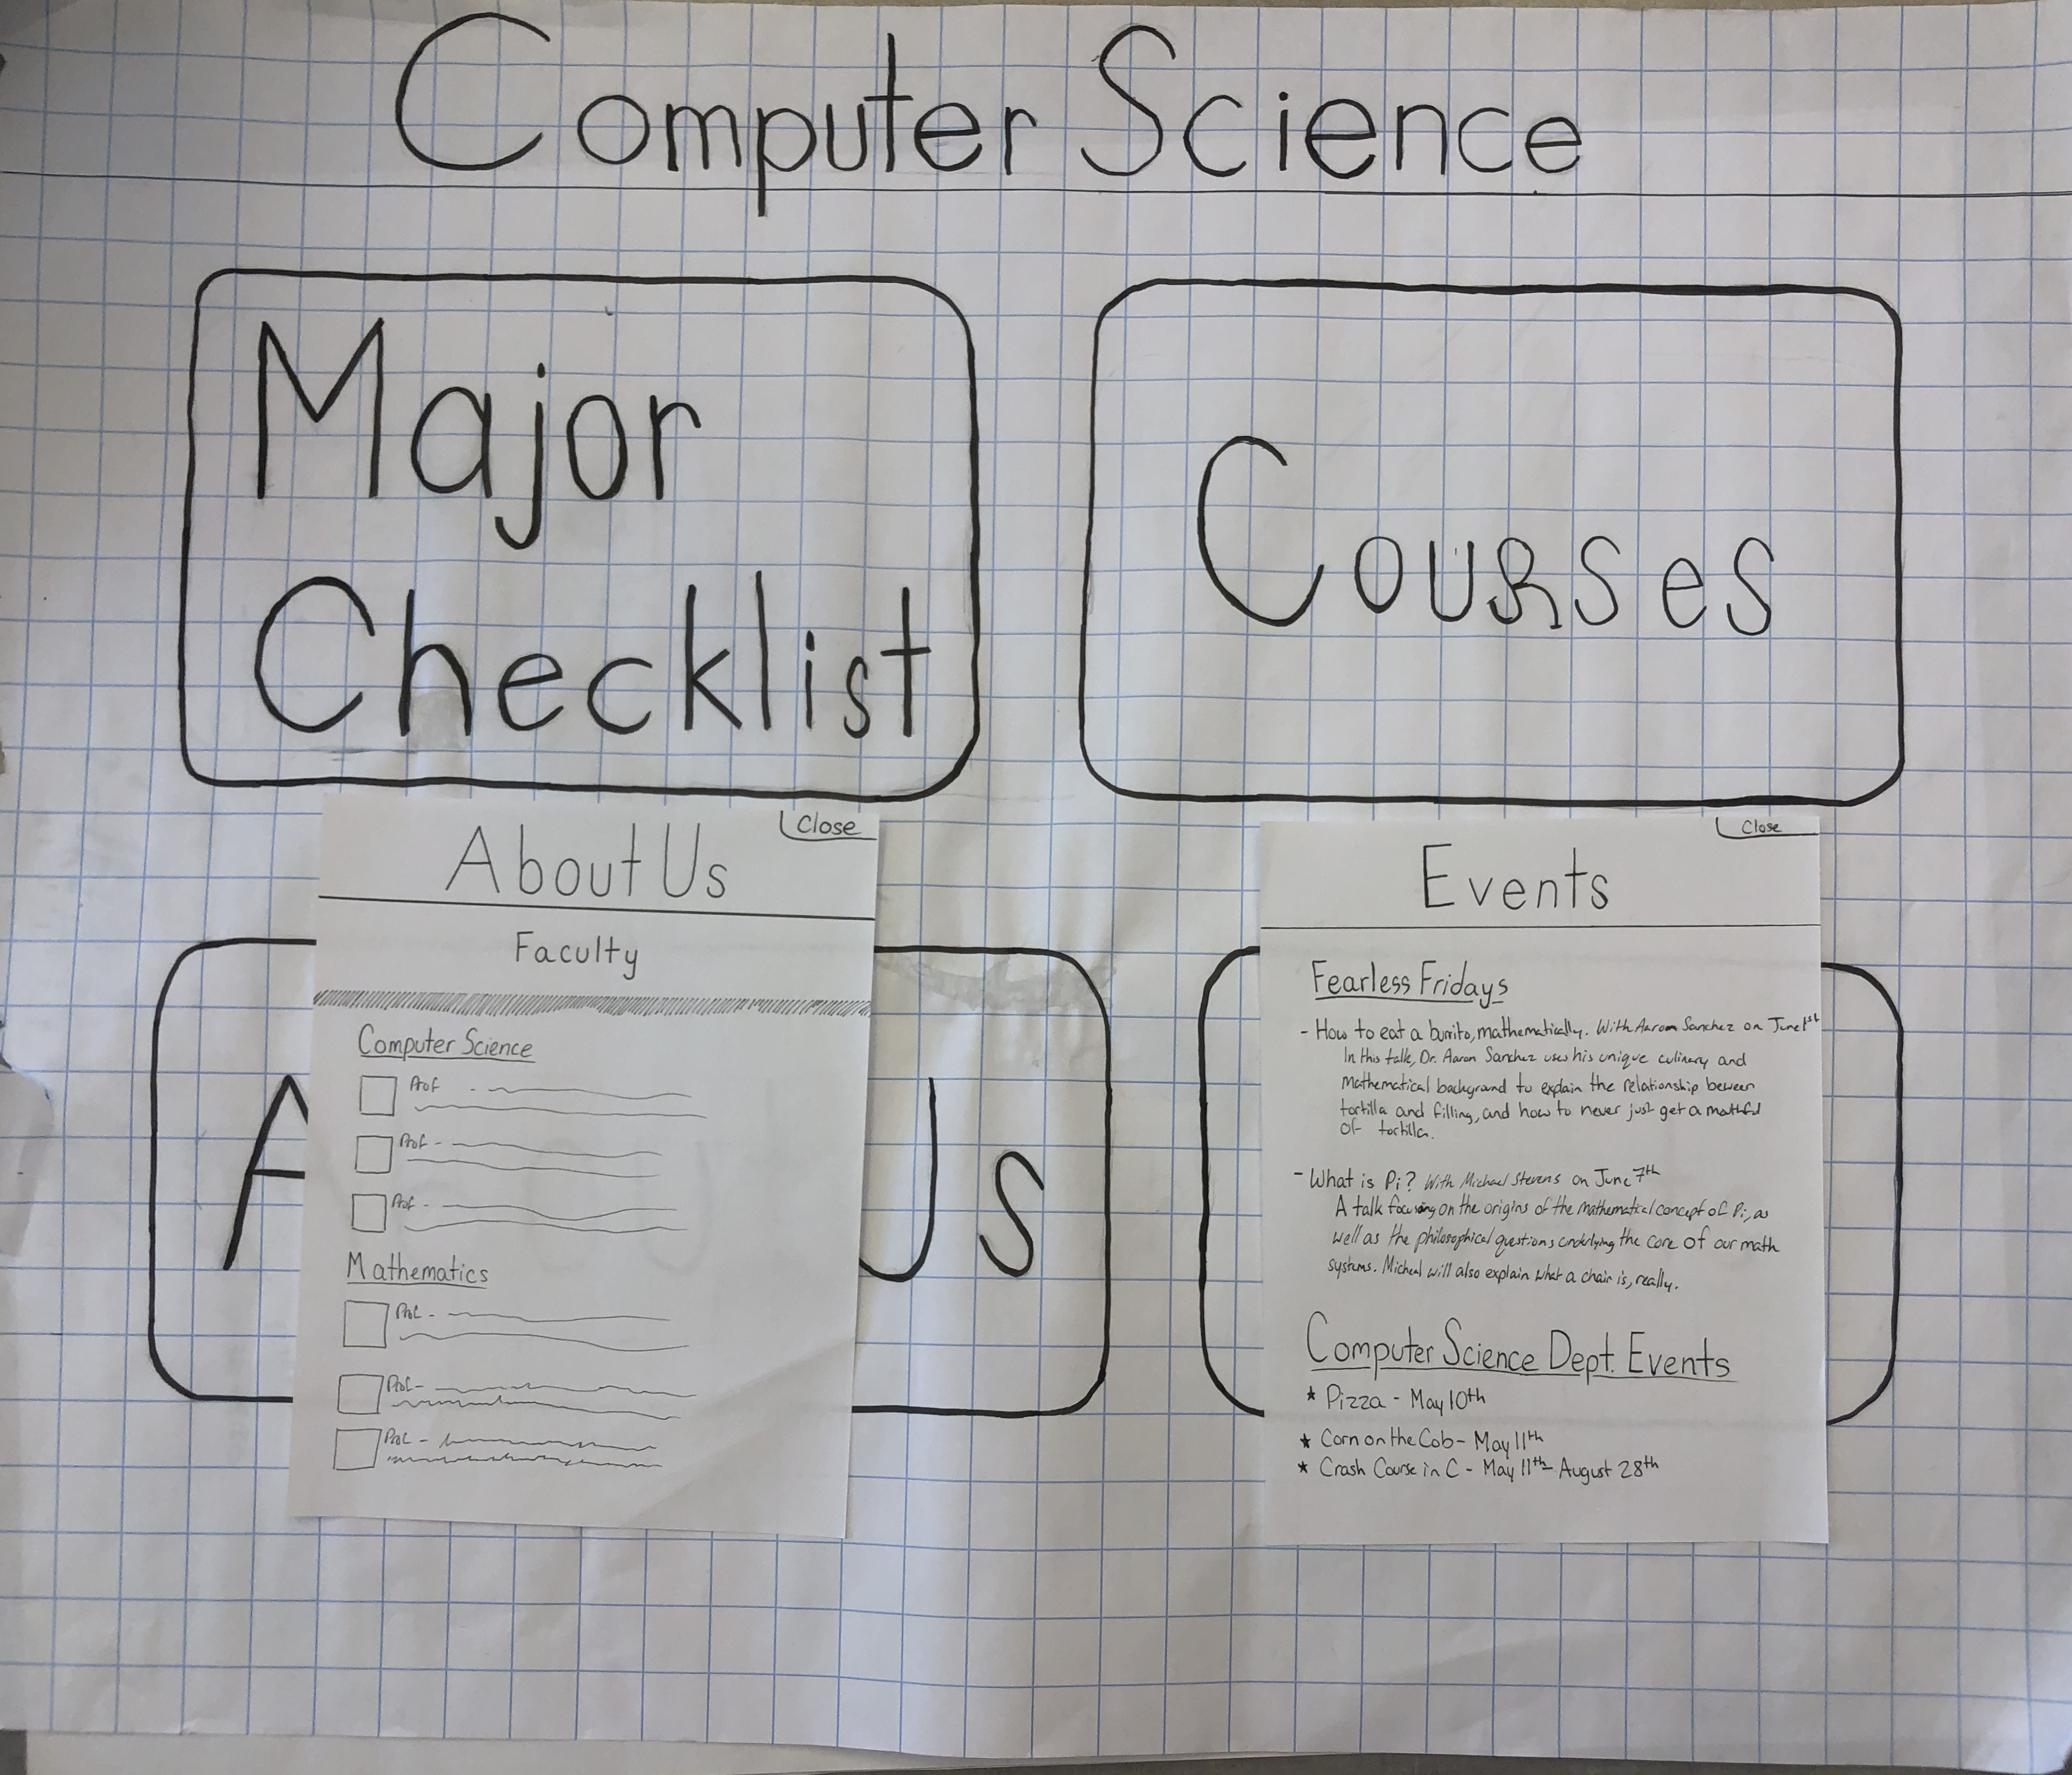 Computer Science
Major
Checklist
Courses
Close
About Us
Faculty
Computer Science
Prof -
Prof -
Prof -
Mathematics
Prof -
Prof -
Prof -
A
Us
Close
Events
Fearless Fridays
- How to eat a burrito, mathematically. With Aaron Sanchez on June 1st
In this talk, Dr. Aaron Sanchez uses his unique culinary and
mathematical background to explain the relationship beween
tortilla and filling, and how to never just get a mouthful
of tortilla.
- What is Pi? With Michael Stevens on June 7th
A talk focusing on the origins of the mathematical concept of Pi, as
well as the philosophical questions underlying the core of our math
systems. Micheal will also explain what a chair is, really.
Computer Science Dept. Events
* Pizza - May 10th
* Corn on the Cob - May 11th
* Crash Course in C - May 11th - August 28th